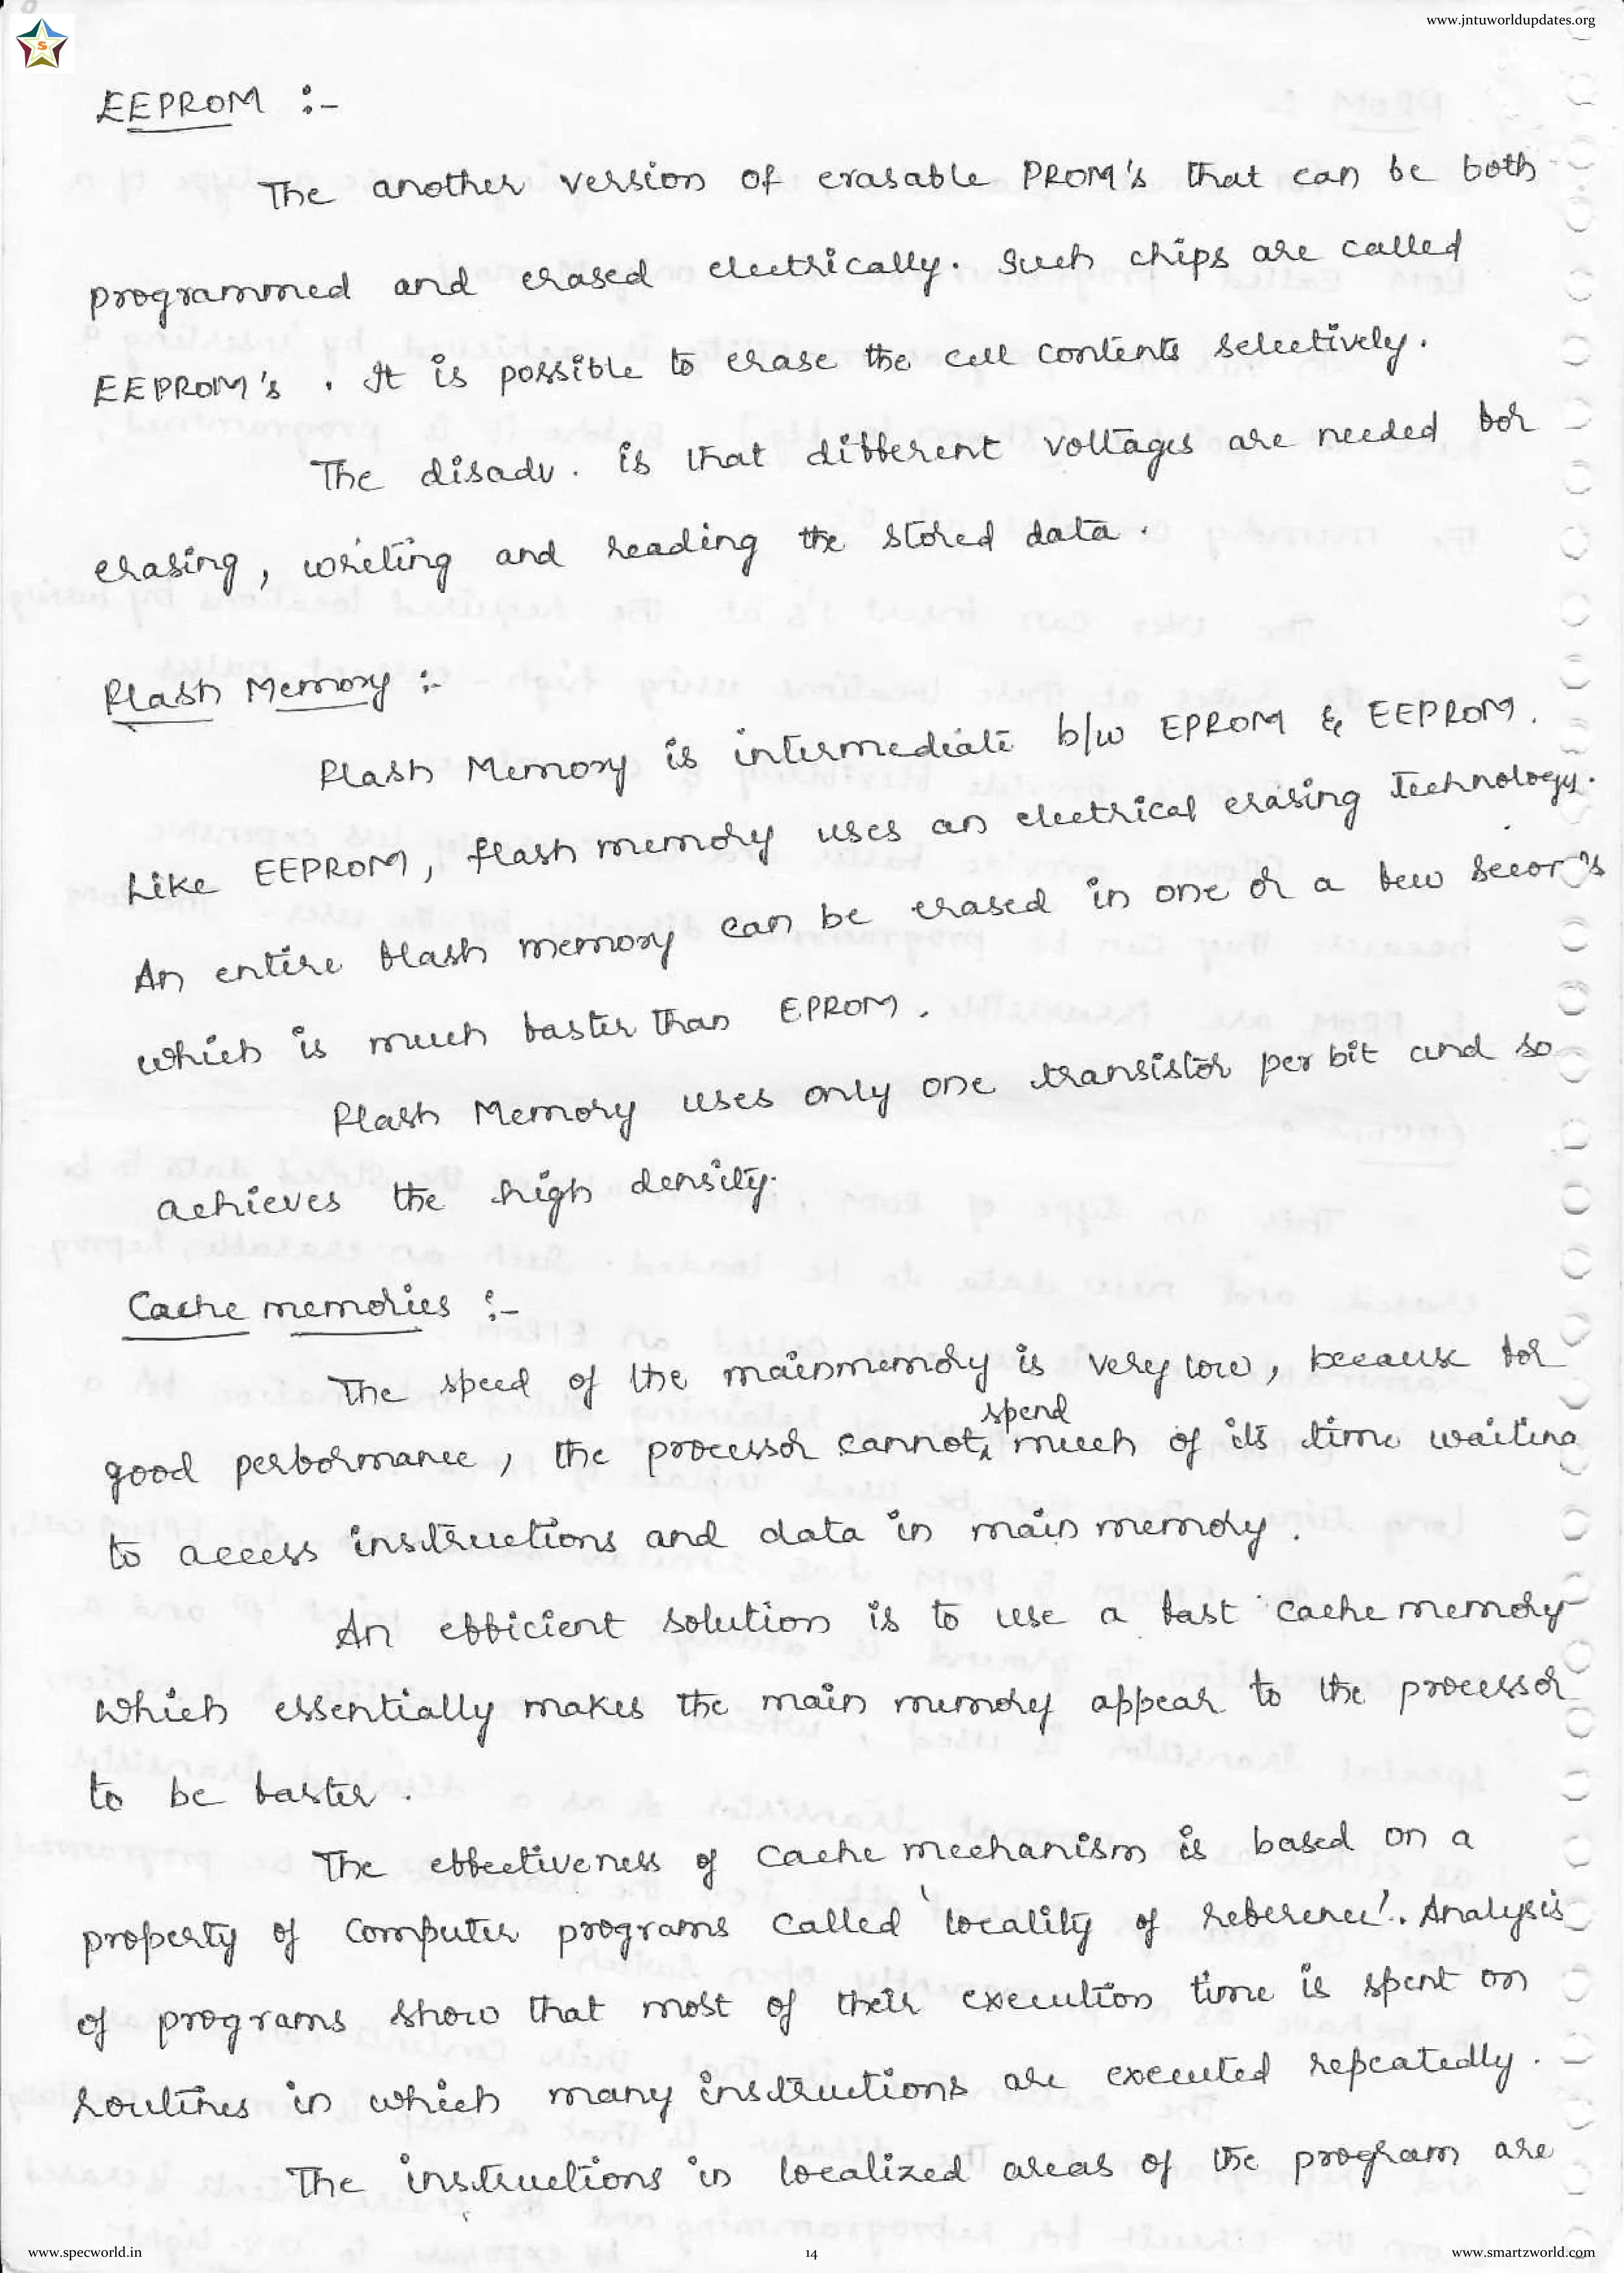 www.jntuworldupdates.org
S
EEPROM :-
The another version of erasable PROM's that can be both
programmed and erased electrically. Such chips are called
EEPROM's . It is possible to erase the cell contents selectively.
The disadv. is that different voltages are needed for
erasing, writing and reading the stored data.
Flash Memory :-
Flash Memory is intermediate b/w EPROM & EEPROM.
Like EEPROM, flash memory uses an electrical erasing Technology.
An entire flash memory can be erased in one or a few
which is much faster than EPROM.
Flash Memory uses only one transistor per bit and so
achieves the high density.
Cache memories :-
The speed of the mainmemory is very low, because for
spend
good performance, the processor cannot much of its time waiting
to access instructions and data in main memory.
An efficient solution is to use a fast cache memory
which essentially makes the main memory appear to the processor
to be faster.
The effectiveness of cache mechanism is based on a
property of computer programs called 'locality of reference'. Analysis
of programs show that most of their execution time is spent on
routines in which many instructions are executed repeatedly.
The instructions in localized areas of the program are
www.specworld.in
14
www.smartzworld.com